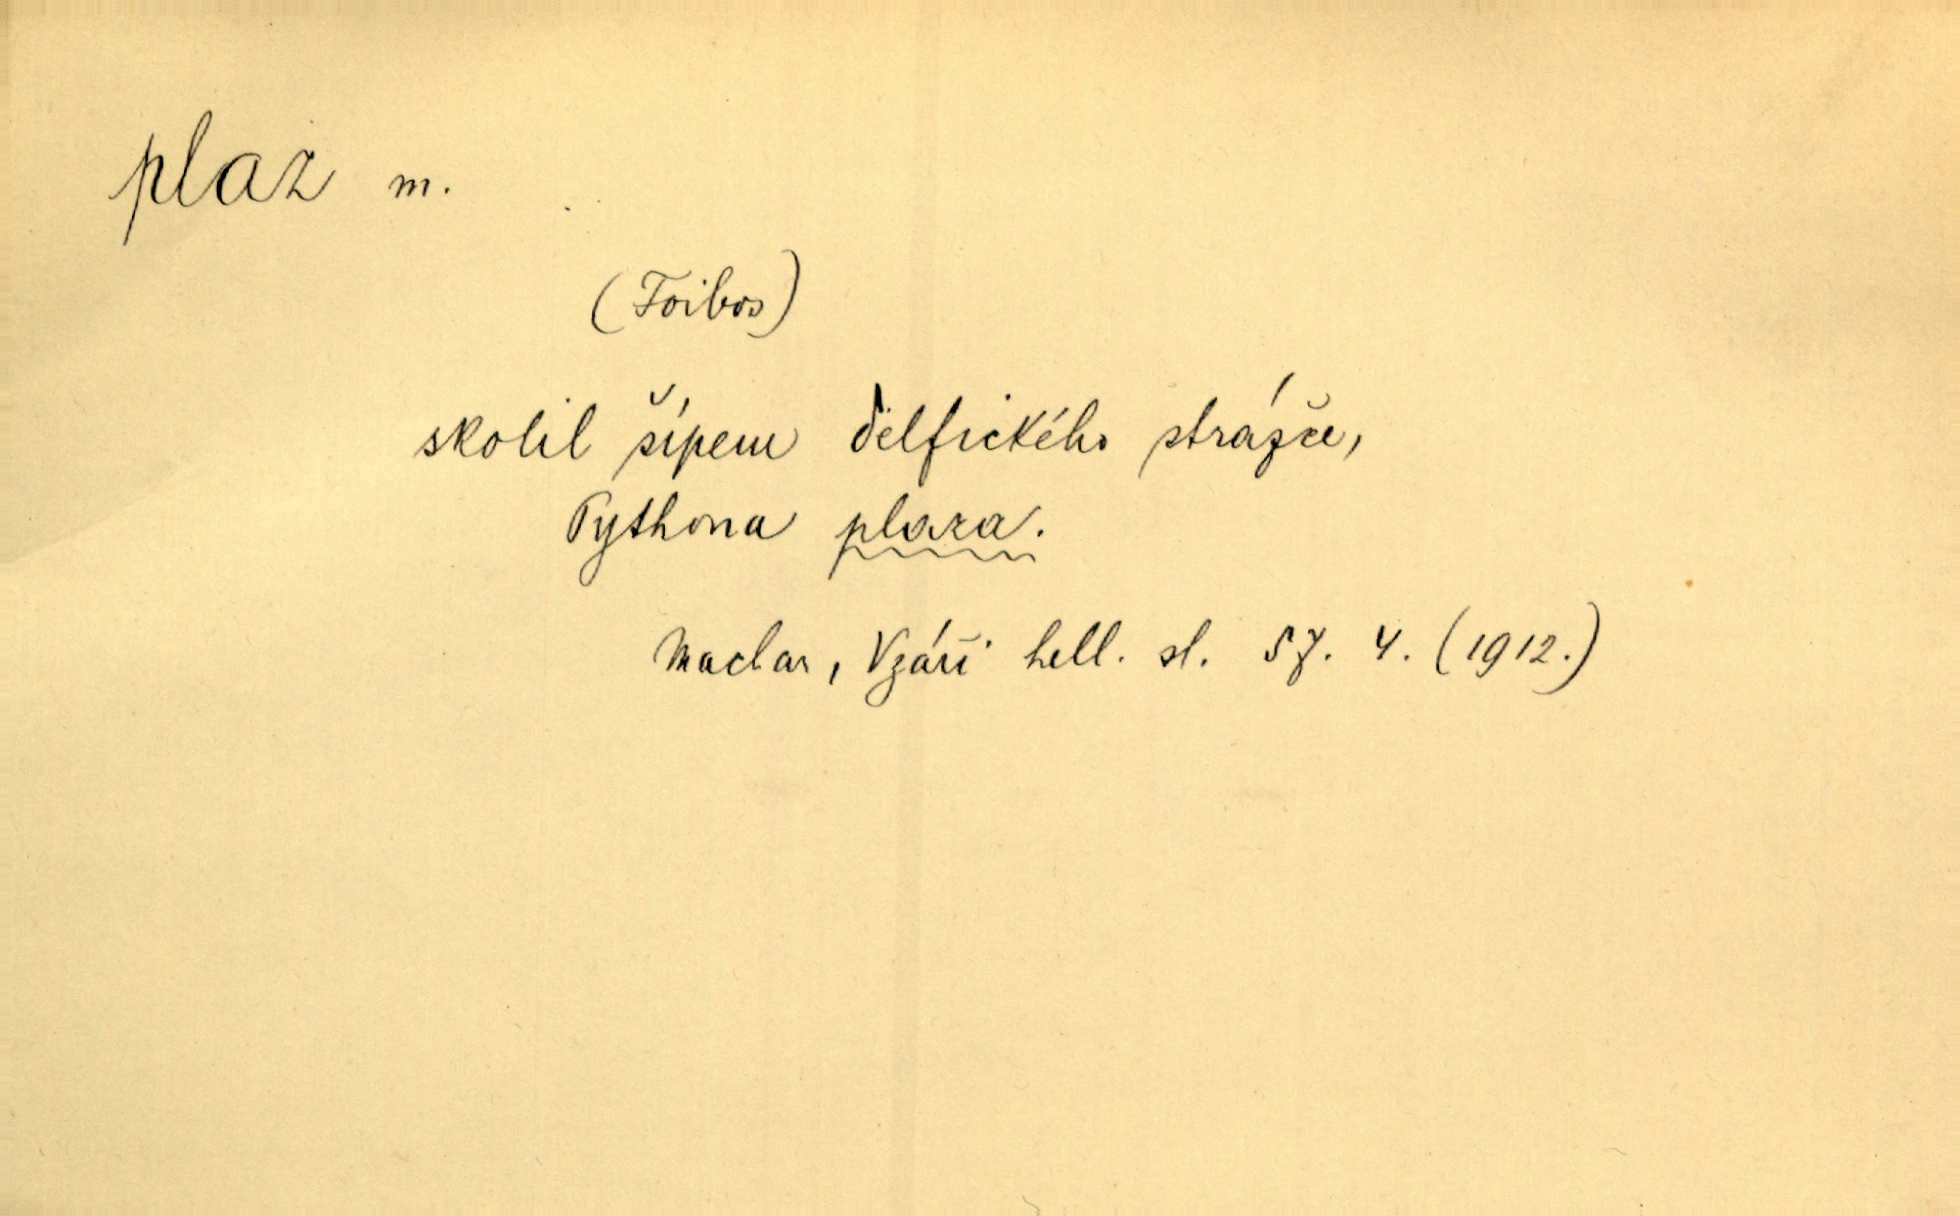 plaz m.
(Foibos)
skolil šípem delfického strážce,
Pythona plaza.
Machar, V záři hell. sl. 57. 4. (1912.)